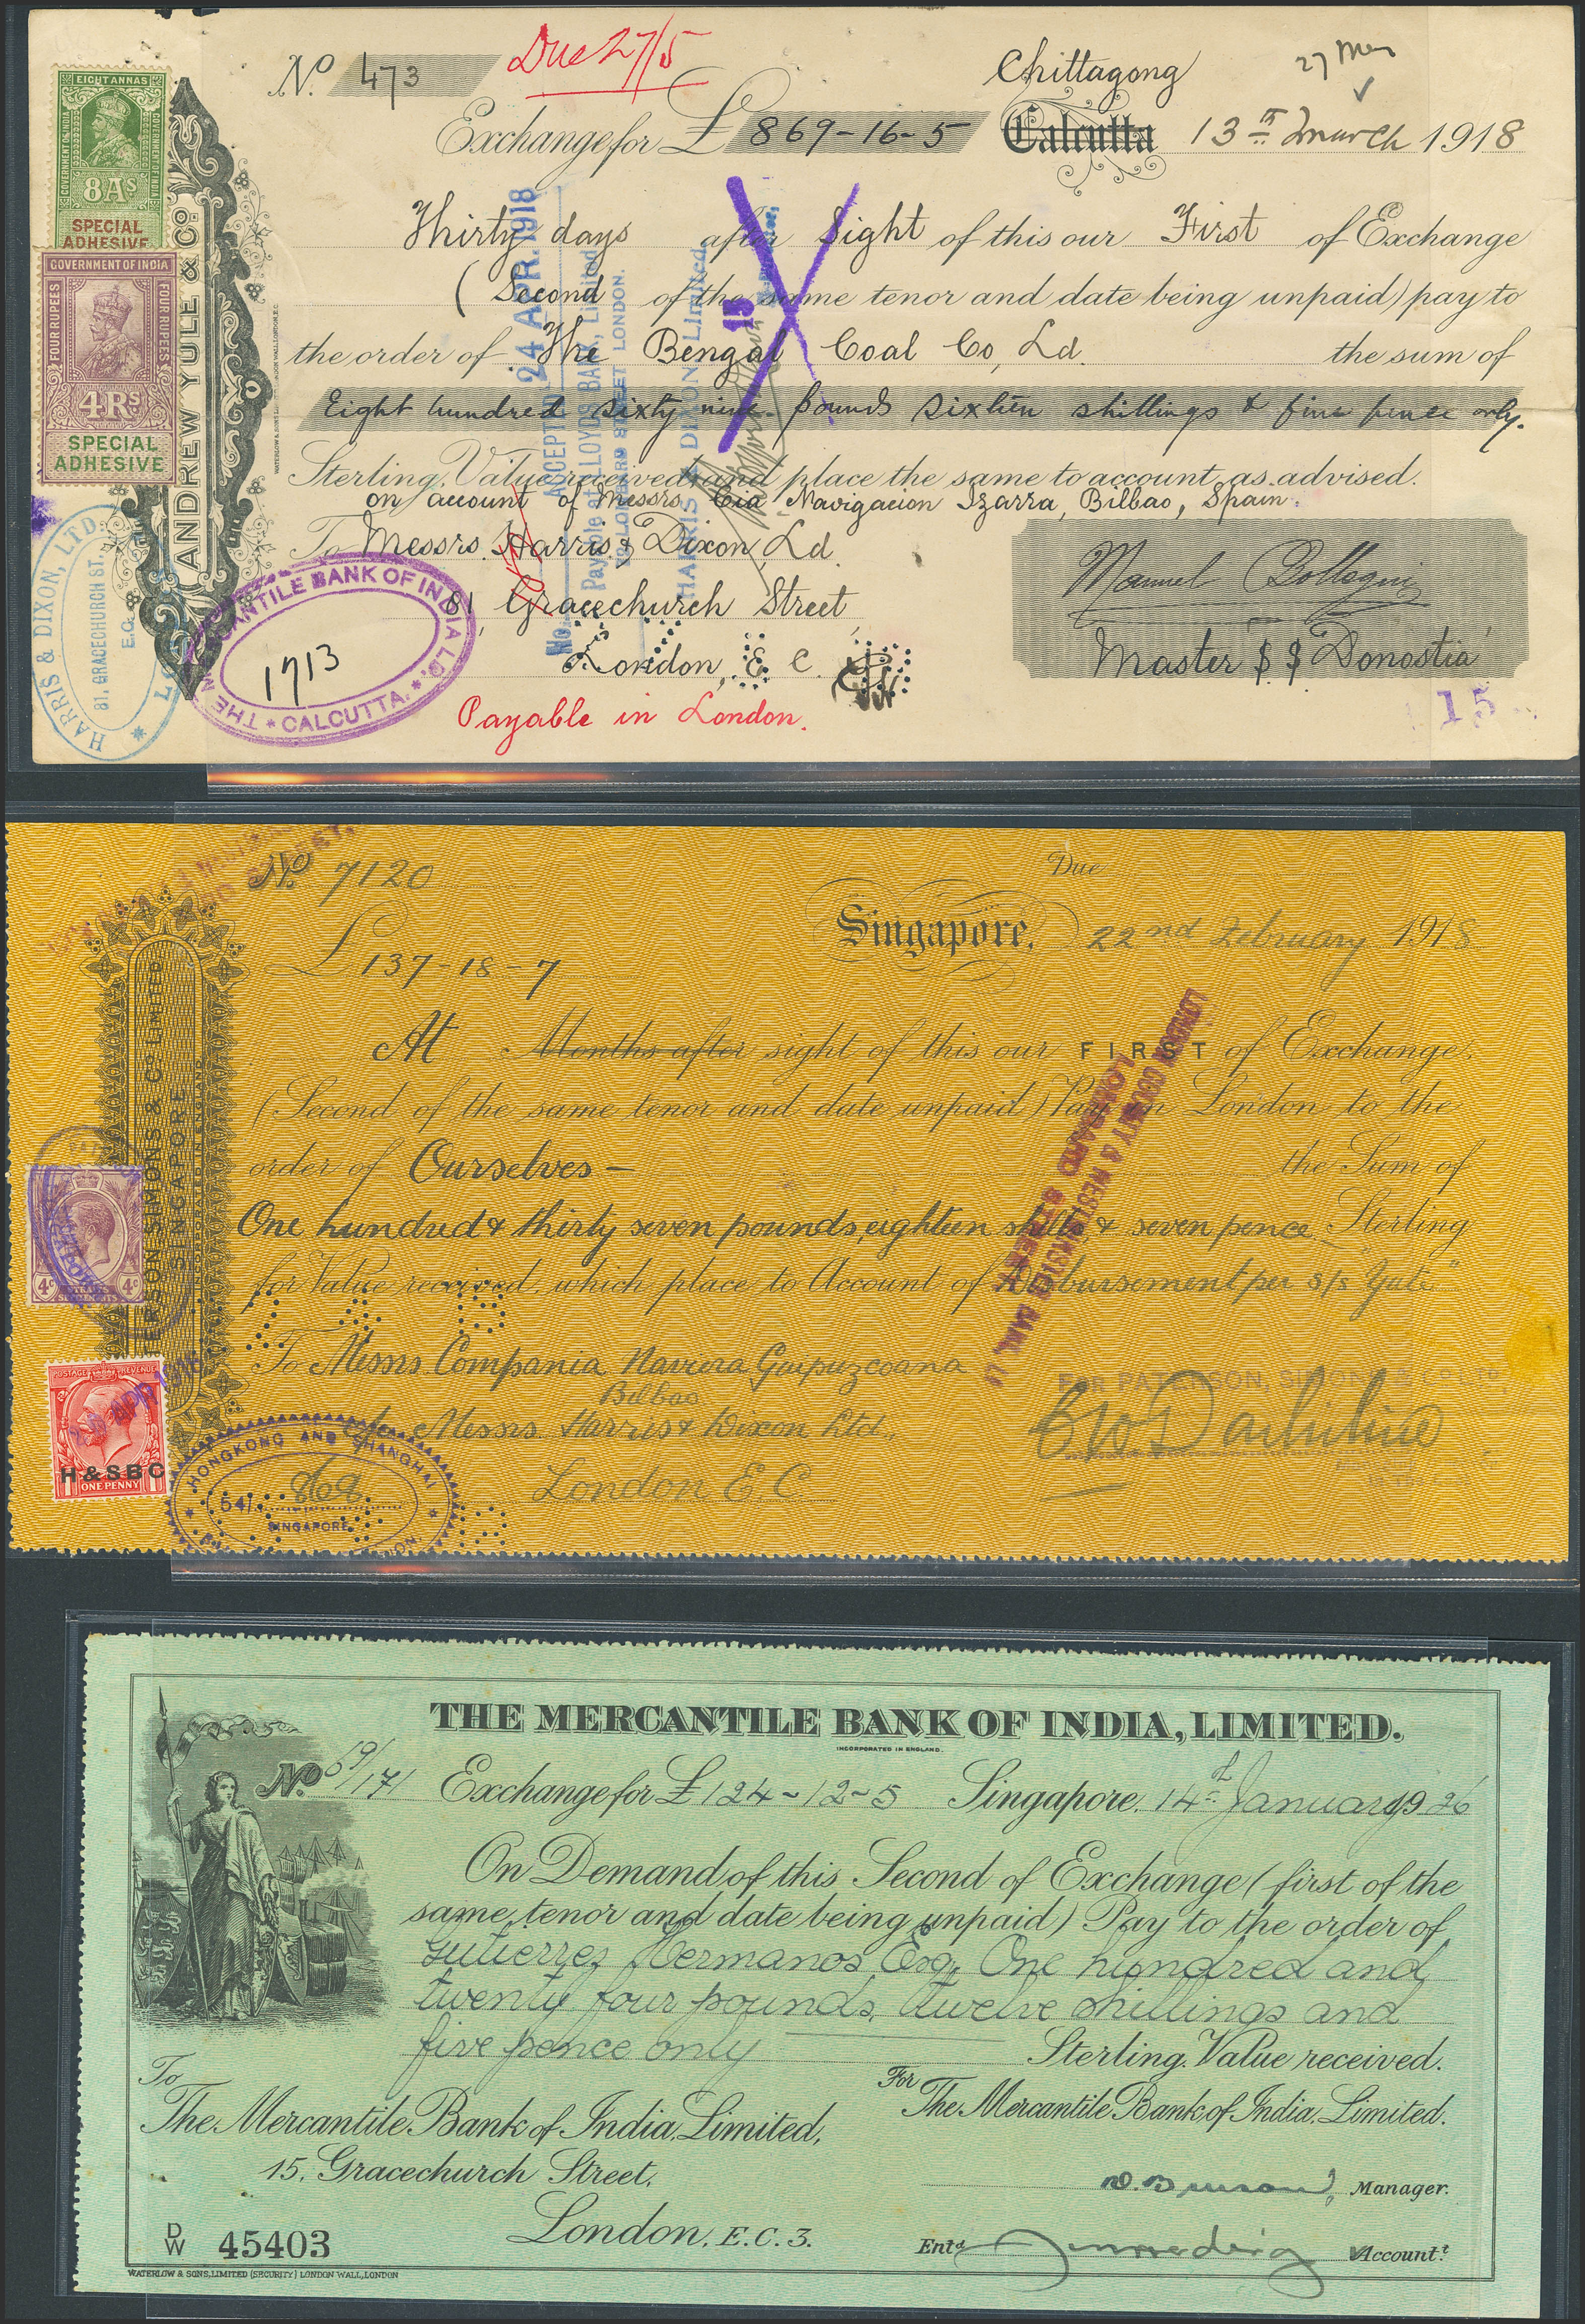 No. 473
Due 27/5
Chittagong
27 May
Exchange for £ 869-16-5 Calcutta 13th March 1918
Thirty days after Sight of this our First of Exchange
(Second of the same tenor and date being unpaid) pay to
the order of The Bengal Coal Co, Ld. the sum of
Eight hundred sixty nine pounds sixteen shillings & five pence only.
Sterling, Value received and place the same to account as advised.
on account of Messrs. Cia Navigacion Izarra, Bilbao, Spain.
To Messrs. Harris & Dixon, Ld.
81, Gracechurch Street,
London, E C.
Payable in London.
Manuel
Master SS "Donostia"
15
15
ANDREW YULE & CO.
EIGHT ANNAS
GOVERNMENT OF INDIA
GOVERNMENT OF INDIA
8As
SPECIAL
ADHESIVE
GOVERNMENT OF INDIA
FOUR RUPEES
FOUR RUPEES
4Rs
SPECIAL
ADHESIVE
HARRIS & DIXON, LTD.
81, GRACECHURCH ST.
E.C.
THE MERCANTILE BANK OF INDIA LD.
1713
CALCUTTA.
ACCEPTED 24 APR. 1918
Payable at LLOYDS BANK, Limited
LOMBARD STREET LONDON.
HARRIS & DIXON Limited.
No.
No. 7120
Due
£ 137-18-7
Singapore, 22nd February 1918
At Months after sight of this our FIRST of Exchange,
(Second of the same tenor and date unpaid) Pay in London to the
order of Ourselves - the Sum of
One hundred & thirty seven pounds, eighteen shills & seven pence Sterling
for Value received which place to Account of Disbursement per s/s "Yute"
To Messrs. Compania Naviera Guipuzcoana
Bilbao
c/o Messrs. Harris & Dixon Ltd.,
London E.C.
FOR PATERSON, SIMONS & CO. LTD.
PATERSON SIMONS & CO. LIMITED
SINGAPORE
INCORPORATED IN ENGLAND
LONDON COUNTY & WESTMINSTER BANK
LOMBARD STREET
4c 4c
POSTAGE REVENUE
H & S B C
ONE PENNY
HONGKONG AND SHANGHAI
54/ 869
SINGAPORE
THE MERCANTILE BANK OF INDIA, LIMITED.
INCORPORATED IN ENGLAND.
No. 59/171 Exchange for £ 124-12-5 Singapore, 14th January 1926
On Demand of this Second of Exchange (first of the
same tenor and date being unpaid) Pay to the order of
Gutierrez Hermanos, Esq, One hundred and
twenty four pounds, twelve shillings and
five pence only Sterling. Value received.
To
The Mercantile Bank of India, Limited,
15, Gracechurch Street,
London, E.C.3.
For
The Mercantile Bank of India, Limited.
Manager.
Entd. Accountt.
D/W 45403
WATERLOW & SONS, LIMITED (SECURITY) LONDON WALL, LONDON